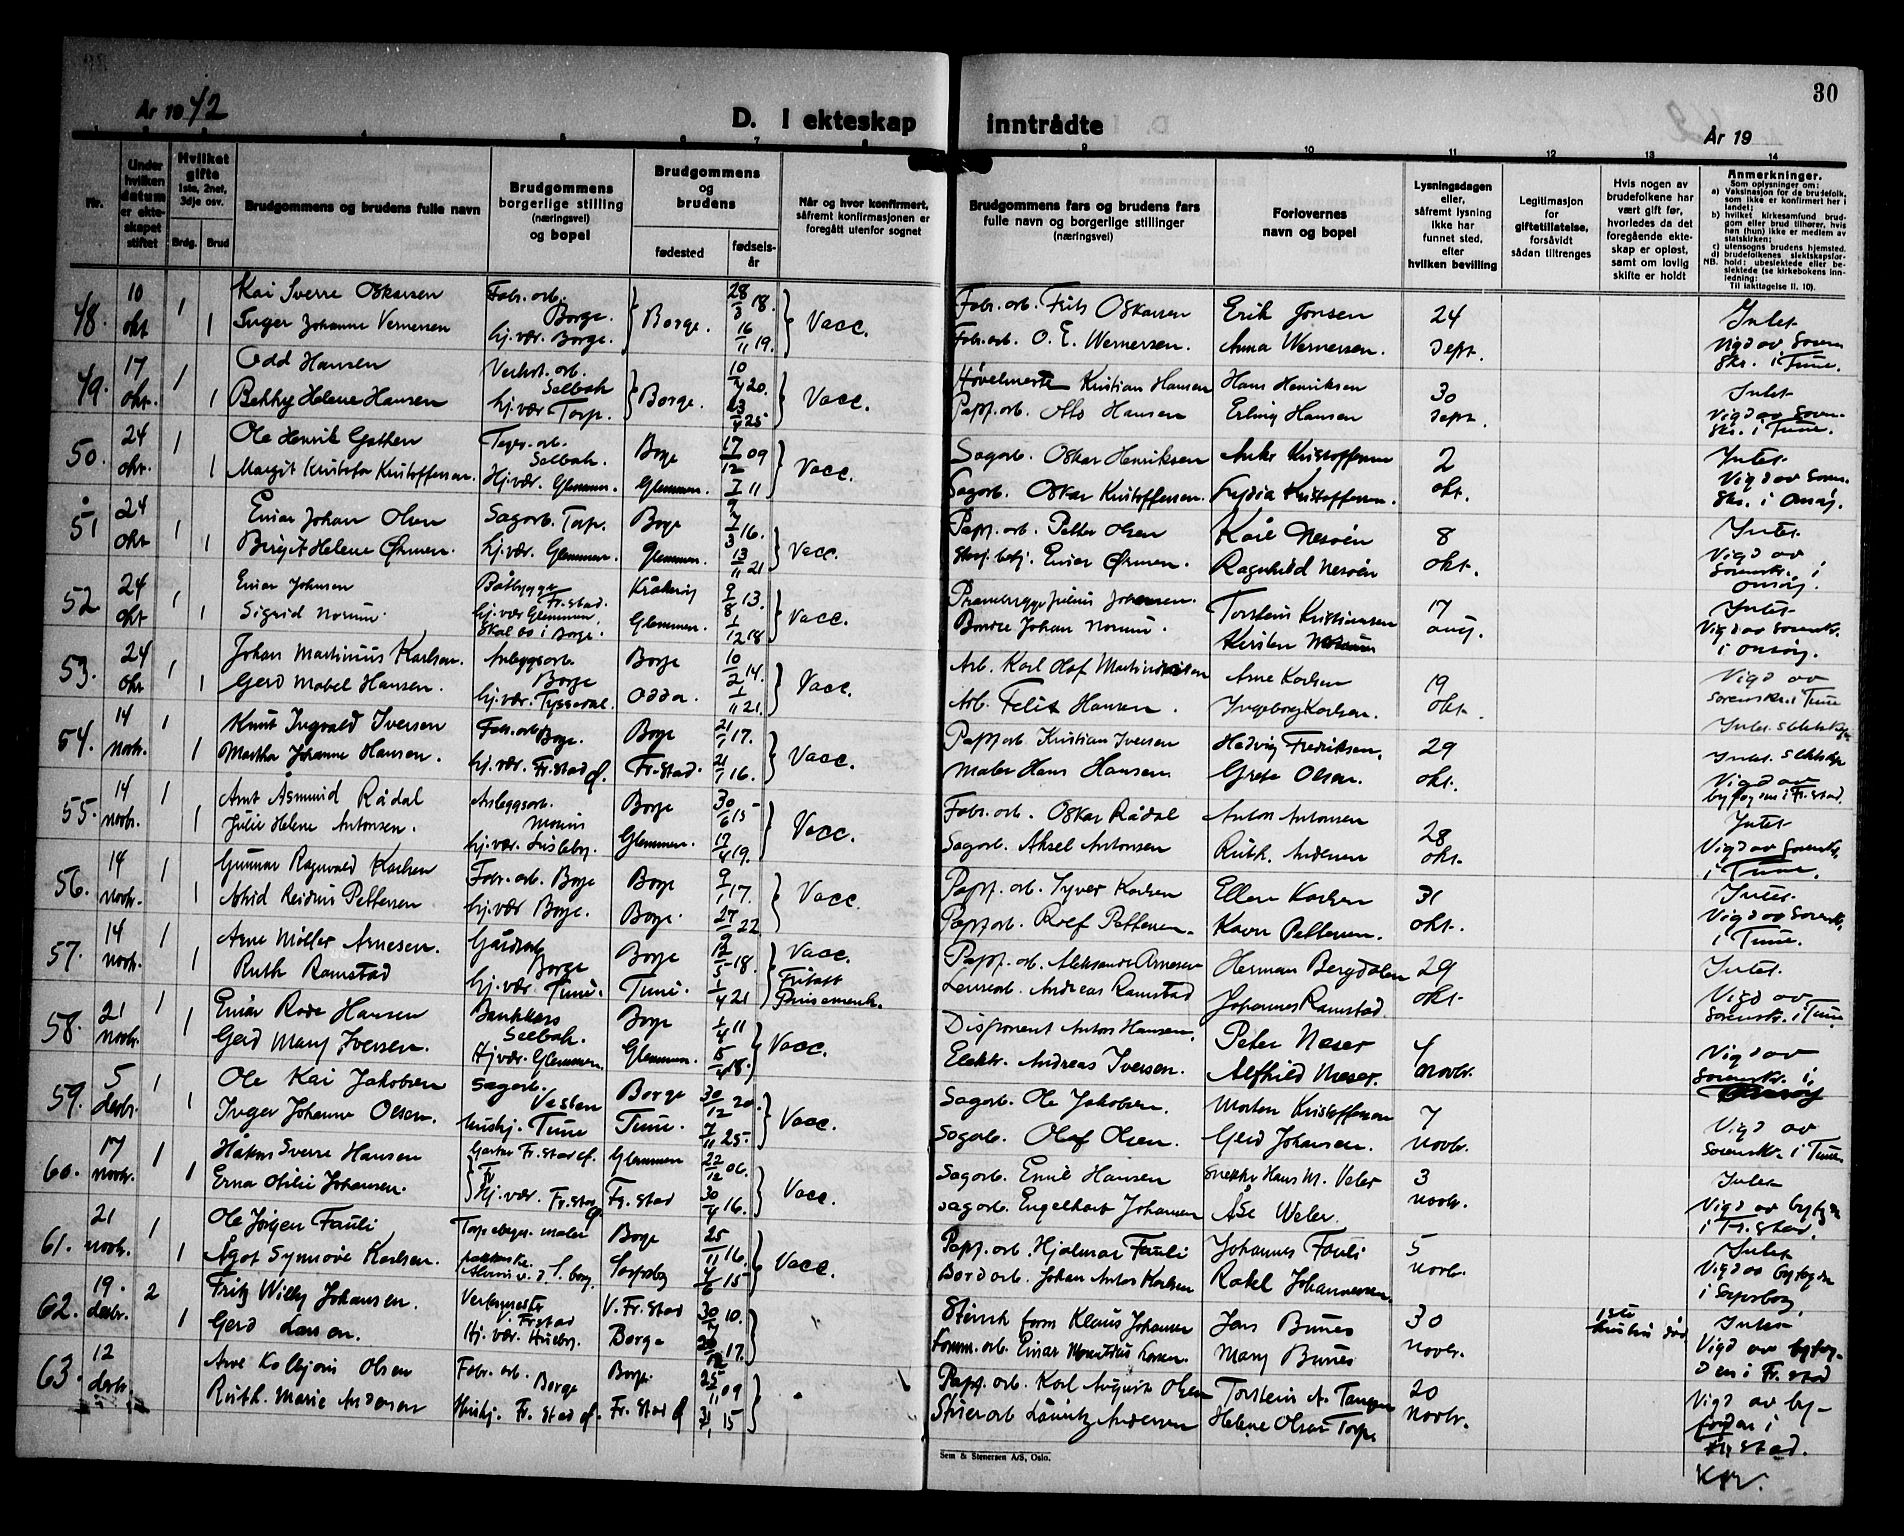 30
År 1942
D. I ekteskap inntrådte
År 19
Nr.
Under hvilken datum er ekteskapet stiftet
Hvilket gifte 1ste, 2net, 3dje osv.
Brdg. Brud
Brudgommens og brudens fulle navn
Brudgommens borgerlige stilling (næringsvei) og bopel
Brudgommens og brudens
fødested
fødselsår
Når og hvor konfirmert, såfremt konfirmasjonen er foregått utenfor sognet
Brudgommens fars og brudens fars fulle navn og borgerlige stillinger (næringsvei)
Forlovernes navn og bopel
Lysningsdagen eller, såfremt lysning ikke har funnet sted, efter hvilken bevilling
Legitimasjon for giftetillatelse, forsåvidt sådan tiltrenges
Hvis nogen av brudefolkene har vært gift før, hvorledes da det foregående ekteskap er opløst, samt om lovlig skifte er holdt
Anmerkninger.
Som oplysninger om:
a) Vaksinasjon for de brudefolk, som ikke er konfirmert her i landet;
b) hvilket kirkesamfund brudgom eller brud tilhører, hvis han (hun) ikke er medlem av statskirken;
c) utensogns brudens hjemsted.
d) brudefolkenes slektskapsforhold: ubeslektede eller beslektede (se kirkebokens innledning;
Til iakttagelse II. 10).
48. 10 okt 1 Kai Sverre Oskarsen Fabr. arb. Borge. Borge. 28/3 18. Vacc. Fabr. arb. Frits Oskarsen Erik Jonsen 24 sept. Intet
1 Inger Johanne Vernersen hj. vær. Borge. 16/11 19. Fabr. arb. O. E. Wernersen. Anna Wernersen. Vigd av Soren- skr. i Tune.
49. 17 okt. 1 Odd Hansen Verkst. arb. Selbak Borge. 20. Vacc. Høvelmester Kristian Hansen Hans Henriksen 30 sept. Intet
1 Bekky Helene Hansen hj. vær Torp. 25 Papp. arb. Otto Hansen Erling Hansen Vigd av Soren- skr. i Tune.
50. 24 okt. 1 Ole Henrik Gathen Selbak. Borge 17/12 09 Vacc. Sagarb. Oskar Henriksen Kristoffersen 2 okt. Intet
1 Margit Kristoffersen. Hj. vær. Glemmen. Glemmen. 11 Sagarb. Oskar Kristoffersen. Lydia Kristoffersen. Vigd av Soren- skr. i Onsøy.
51 24 okt 1 Einar Johan Olsen Sagarb. Torp. Borge 16. Vacc. Papp. arb. Petter Olsen Kåre Nesøen 8 okt. Intet.
1 Birgit Helene Øhmen. hj. vær. Glemmen. Glemmen. 13/11 21 Einar Øhmen. Ragnhild Nesøen Vigd av Sorenskr. i Onsøy.
52 24 okt 1 Einar Johnsen Båtbygge Fr. stad. Kråkerøy 9/8 13. Vacc. Julius Johansen. Torstein Kristiansen 17 aug. Intet
1 Sigrid Norum. hj. vær Glemmen. Skal bo i Borge. Glemmen. 1/12 18 Bonde Johan Norum. Kirsten Norum Vigd av Sorenskr. i Onsøy.
53. 24 okt 1 Johan Martinius Karlsen. Anleggsarb. Borge Borge 10/2 14. Vacc. Arb. Karl Olaf Arne Karlsen 19 okt. Vigd av
1 Gerd Mabel Hansen. hj. vær. Tyssedal. Odda. 1/11 21. Arb. Felix Hansen. Ingeborg Karlsen. sorenskr. i Tune
54. 14 novbr. 1 Knut Ingvald Iversen Fabr. arb. Borge. Borge 21/1 17. Vacc. Papp. arb. Kristian Iversen Hedvig Fredriksen. 29 okt. Intet slektskap
1 Martha Johanne Hansen. hj. vær. Fr. stad. Fr. stad. 16. Maler Hans Hansen. Grete Olsen. Vigd av byfogden i Fr. stad.
55. 14 novbr. 1 Arnt Åsmund Rådal Anleggsarb. Borge 30/6 15 Vacc. Fabr. arb. Oskar Rådal Anton Antonsen 28 okt. Intet
1 Julie Helene Antonsen. hj. vær. Lisleby. Glemmen. 17/4 19. Sagarb. Aksel Antonsen Ruth. Andersen Vigd av Sorenskr. i Tune.
56. 14 novbr. 1 Gunnar Ragnvald Karlsen Fabr. arb. Borge Borge 9/1 17. Vacc. Papp. arb. Syver Karlsen Ellen Karlsen 31 okt. Intet
1 Astrid Reidun Pettersen hj. vær Borge. Borge. 22 Papp. arb. Rolf Pettersen. Karin Pettersen. Vigd av Sorenskr. i Tune.
57. 14 novbr. 1 Arne Møller Arnesen. Gårdsarb. Borge Borge 18. Vacc. Papp. arb. Aleksander Arnesen Herman Bergdalen 29 okt. Intet.
1 Ruth Ramstad hj. vær Tune. Tune. 1/4 21 Fritatt Andreas Ramstad Johannes Ramstad. Vigd av sorenskr. i Tune
58. 21 novbr. 1 Einar Rode Hansen Selbak. Borge 1/4 11 Vacc. Disponent Anton Hansen. Peter Næser 4 novbr. Vigd av
1 Gerd Mary Iversen. Hj. vær. Glemmen. Glemmen. 5/4 18. Elektr. Andreas Iversen. Alfhild Næser. Sorenskr. i Onsøy
59. 5 desbr. 1 Ole Kai Jakobsen Sagarb. Borge 30/12 20. Vacc. Sagarb. Ole Jakobsen. Morten Kristoffersen 7 novbr. Vigd av
1 Inger Johanne Olsen. hushj. Tune Tune. 7/11 25. Sagarb. Olaf Olsen. Gerd Johansen. Sorenskr. i Tune
60. 17 novbr. 1 Håkon Sverre Hansen Gartner Fr. stad. Glemmen 22/12 06. Vacc. Sagarb. Emil Hansen Snekker Hans M. Veler 3 novbr. Intet
1 Erna Otilie Johansen. Hj. vær. Fr. stad Fr. stad 30/4 16. sagarb. Engelhart Johansen Åse Weler. Vigd av byfogden i Fr. stad.
61. 21 novbr. 1 Ole Jørgen Fauli maler Borge 25/11 16. Vacc. Papp. arb. Hjalmar Fauli Johannes Fauli 5 novbr. Intet
1 Ågot Synnøve Karlsen. S. borg. Sarpsborg 15 Bordarb. Johan Anton Karlsen Rakel Johannessen. Vigd av byfogden i Sarpsborg.
62. 19. desbr. 2 Fritz Willy Johansen. V. Fr. stad V. Fr. stad 10. Klaus Johansen Jens Bunes 30 novbr. 1ste hustru død Intet
1 Gerd Larsen. Hj. vær. Borge 17. Einar Larsen. Mary Bunes Vigd av byfogden i Fr. stad
63. 12 desbr. Arve Kolbjørn Olsen Fabr. arb. Borge Borge 25/11 09 Papp. arb. Karl August Olsen Torstein A. Tangen 20 novbr. Vigd av by-
Ruth. Marie Andersen Hushj. Fr. stad Fr. stad 31/1 15 Lauritz Andersen Helene Olsen Torp. fogden i Fr. stad.
Sem & Stenersen A/S, Oslo.